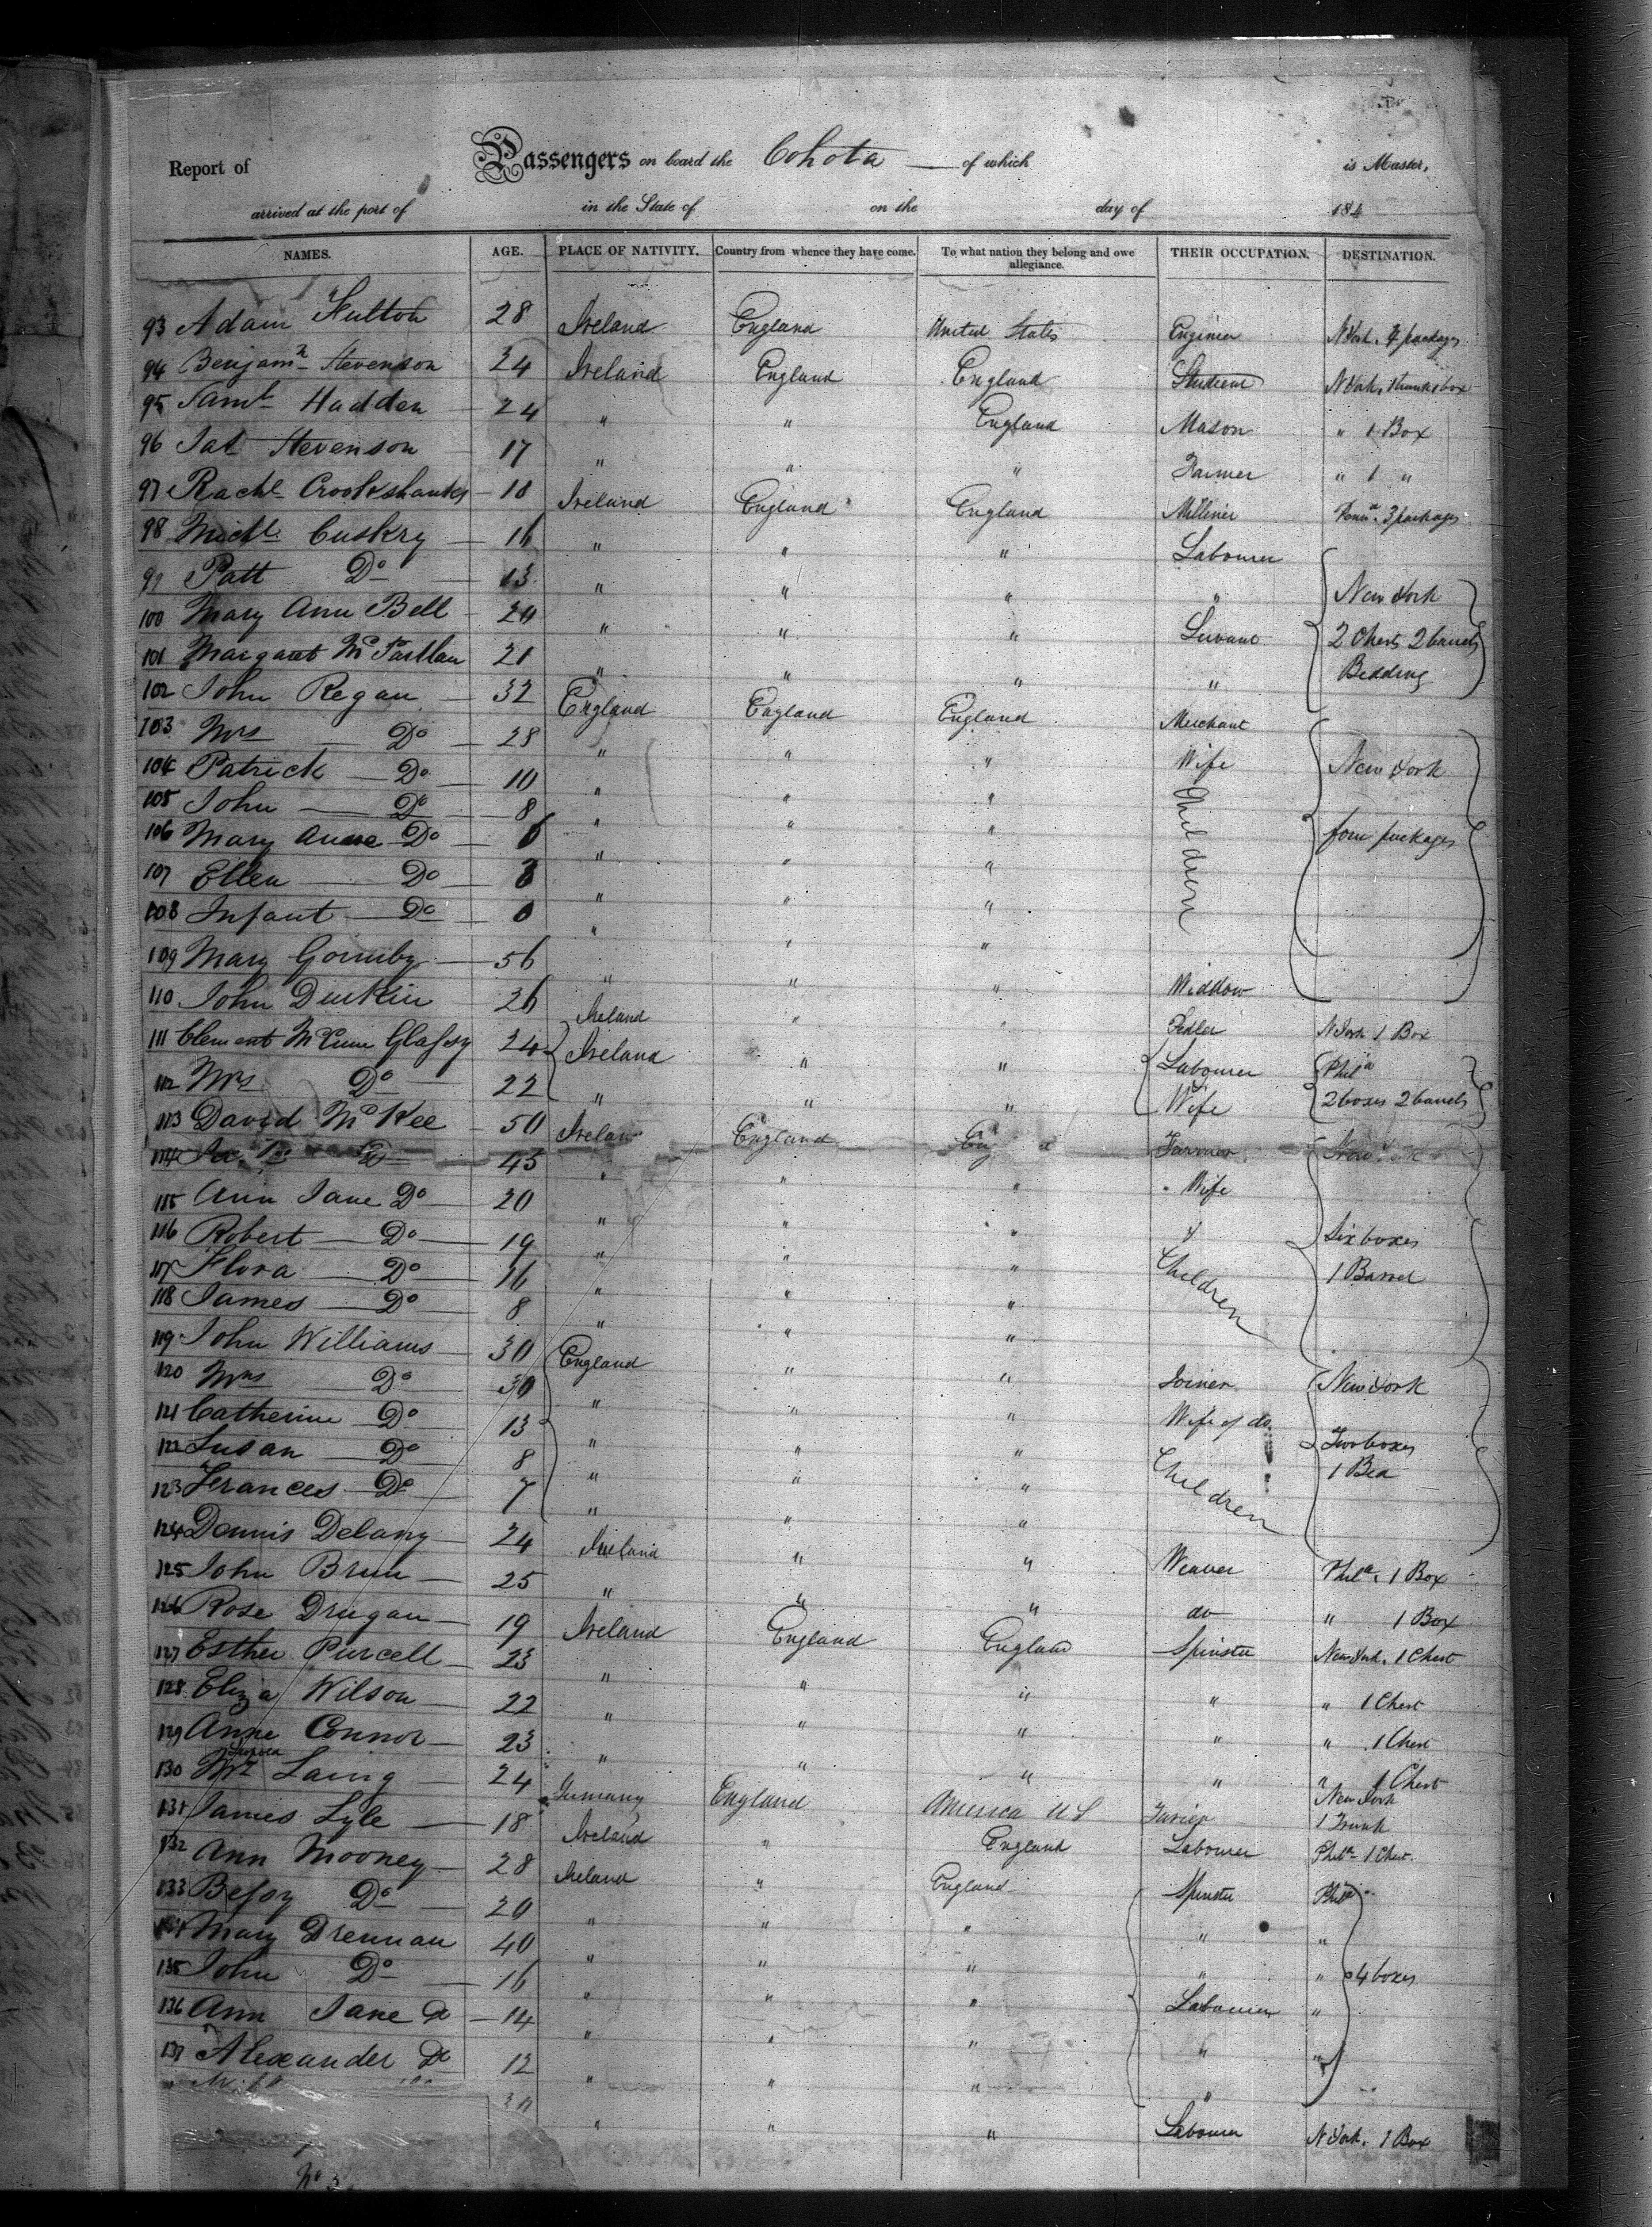 Report of Passengers on board the Cohota of which is Master,
arrived at the port of in the State of on the day of 184
NAMES. AGE. PLACE OF NATIVITY. Country from whence they have come. To what nation they belong and owe allegiance. THEIR OCCUPATION. DESTINATION.
93 Adam Fulton 28 Ireland England United States Engineer N York. 4 packages
94 Benjamn Stevenson 24 Ireland England England Student N York, 1 trunk 1 box
95 Saml Hadden 24 " " England Mason " 1 Box
96 Jas Stevenson 17 " " " Farmer " 1 "
97 Rachl Crookshanks 18 Ireland England England Milliner Penna. 3 packages
98 Michl Cuskry 16 " " " Labourer
99 Patt Do 13 " " " " New York
100 Mary Ann Bell 20 " " " Servant 2 Chests 2 barrels
101 Margaret McPartlan 21 " " " " Bedding
102 John Regan 32 England England England Merchant
103 Mrs Do 28 " " " Wife New York
104 Patrick Do 10 " " " Children
105 John Do 8 " " "
106 Mary Anne Do 6 " " " four packages
107 Ellen Do 3 " " "
108 Infant Do 0 " " "
109 Mary Gormby 56 " " " Widdow
110 John Durkin 26 Ireland " " Pedler N York 1 Box
111 Clement McCune Glassy 24 Ireland " " Labourer Phila
112 Mrs Do 22 " " " & Wife 2 boxes 2 barrels
113 David McKee 50 Ireland England Farmer
114 Do 45 " " " Wife
115 Ann Jane Do 20 " " " & Six boxes
116 Robert Do 19 " " " Children 1 Barrel
117 Flora Do 16 " " "
118 James Do 8 " " "
119 John Williams 30 England " " Joiner New York
120 Mrs Do 30 " " " Wife of do
121 Catherine Do 13 " " " Children Two boxes
122 Susan Do 8 " " " 1 Bed
123 Frances Do 7 " " "
124 Dennis Delany 24 Ireland " " Weaver Phila. 1 Box
125 John Brun 25 " " " do " 1 Box
126 Rose Drugan 19 Ireland England England Spinster New York. 1 Chest
127 Esther Purcell 23 " " " " " 1 Chest
128 Eliza Wilson 22 " " " " " 1 Chest
129 Anne Connor 23 " " " " " 1 Chest
130 Mr Laing 24 Germany England America U S New York 1 Trunk
131 James Lyle 18 Ireland " England Labourer Phila 1 Chest.
132 Ann Mooney 28 Ireland " England Spinster Phila
133 Bessy Do 20 " " " " "
134 Mary Drennan 40 " " " " " 4 boxes
135 John Do 16 " " " Labourer "
136 Ann Jane Do 14 " " " " "
137 Alexander Do 12 " " " "
30 " " " Labourer N York. 1 Box